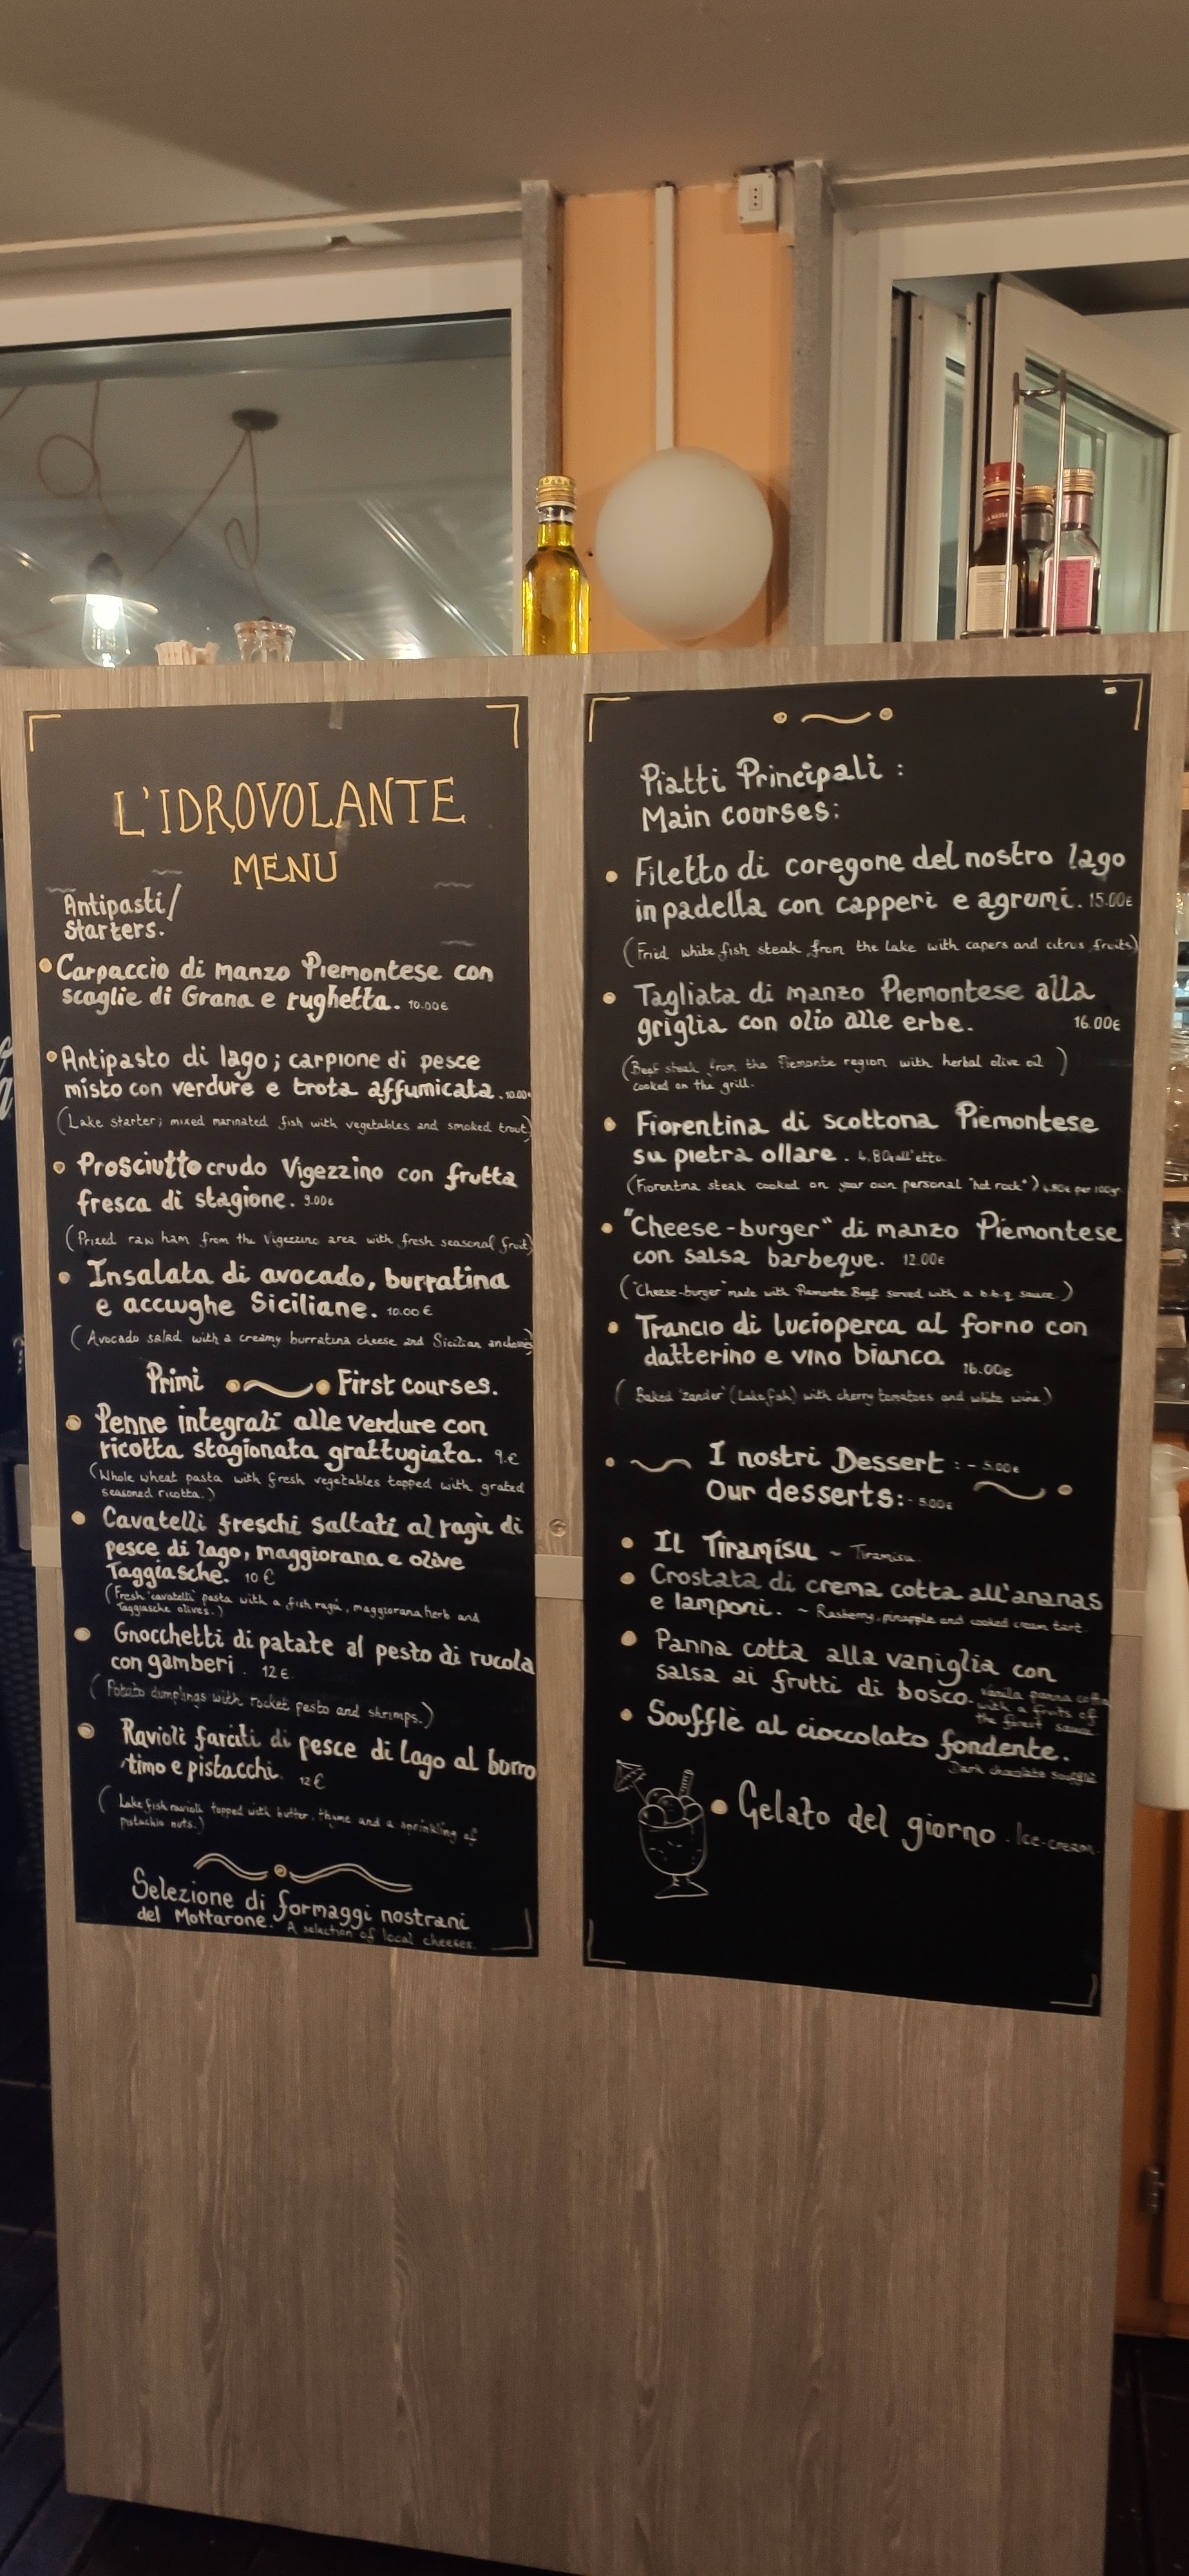 L'IDROVOLANTE
MENU
Antipasti/
Starters.
Carpaccio di manzo Piemontese con
scaglie di Grana e rughetta. 10.00€
Antipasto di lago; carpione di pesce
misto con verdure e trota affumicata. 10.00€
(Lake starter; mixed marinated fish with vegetables and smoked trout)
Prosciutto crudo Vigezzino con frutta
fresca di stagione. 9.00€
(Prized raw ham from the Vigezzino area with fresh seasonal fruit)
Insalata di avocado, burratina
e acciughe Siciliane. 10.00€
(Avocado salad with a creamy burratina cheese and Sicilian anchovies)
Primi First courses.
Penne integrali alle verdure con
ricotta stagionata grattugiata. 9.€
(Whole wheat pasta with fresh vegetables topped with grated
seasoned ricotta.)
Cavatelli freschi saltati al ragù di
pesce di lago, maggiorana e olive
Taggiasche. 10€
(Fresh 'cavatelli' pasta with a fish ragù, maggiorana herb and
Taggiasche olives.)
Gnocchetti di patate al pesto di rucola
con gamberi. 12€
(Potato dumplings with rocket pesto and shrimps.)
Ravioli farciti di pesce di lago al burro
timo e pistacchi. 12€
(Lake fish ravioli topped with butter, thyme and a sprinkling of
pistachio nuts.)
Selezione di formaggi nostrani
del Mottarone. A selection of local cheeses.
Piatti Principali :
Main courses:
Filetto di coregone del nostro lago
in padella con capperi e agrumi. 15.00€
(Fried white fish steak from the lake with capers and citrus fruits)
Tagliata di manzo Piemontese alla
griglia con olio alle erbe. 16.00€
(Beef steak from the Piemonte region with herbal olive oil )
cooked on the grill.
Fiorentina di scottona Piemontese
su pietra ollare. 4.80€all'etto.
(Fiorentina steak cooked on your own personal "hot rock") 4.80€ per 100gr.
"Cheese-burger" di manzo Piemontese
con salsa barbeque. 12.00€
("Cheese-burger" made with Piemonte Beef served with a b.b.q sauce.)
Trancio di lucioperca al forno con
datterino e vino bianco 16.00€
(Baked 'zander' (Lake fish) with cherry tomatoes and white wine)
I nostri Dessert : - 5.00€
Our desserts: - 5.00€
Il Tiramisu ~ Tiramisu.
Crostata di crema cotta all'ananas
e lamponi. ~ Rasberry, pineapple and cooked cream tart.
Panna cotta alla vaniglia con
salsa ai frutti di bosco. Vanilla panna cotta
with a fruits of
the forest sauce.
Soufflè al cioccolato fondente.
Dark chocolate soufflè
Gelato del giorno. Ice-cream.